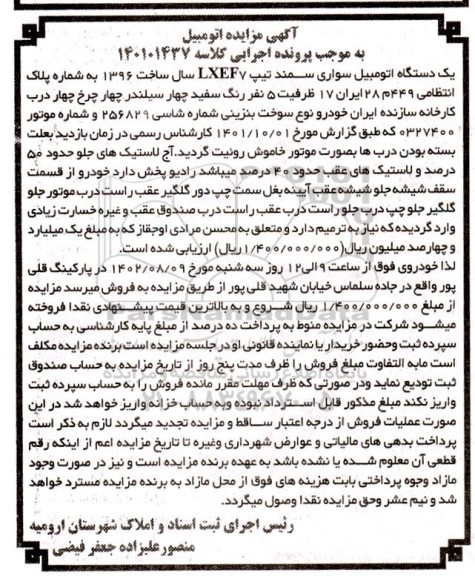 آگهی مزایده اتومبیل
به موجب پرونده اجرایی کلاسه ۱۴۰۱۰۱۴۳۷
یک دستگاه اتومبیل سواری سمند تیپ LXEF۷ سال ساخت ۱۳۹۶ به شماره پلاک
انتظامی ۴۴۹م ۲۸ ایران ۱۷ ظرفیت ۵ نفر رنگ سفید چهار سیلندر چهار چرخ چهار درب
کارخانه سازنده ایران خودرو نوع سوخت بنزینی شماره شاسی ۲۵۶۸۲۹ و شماره موتور
۰۳۲۷۴۰۰ که طبق گزارش مورخ ۱۴۰۱/۱۰/۰۱ کارشناس رسمی در زمان بازدید بعلت
بسته بودن درب ها بصورت موتور خاموش رونیت گردید.آج لاستیک های جلو حدود ۵۰
درصد و لاستیک های عقب حدود ۴۰ درصد میباشد رادیو پخش دارد خودرو از قسمت
سقف شیشه جلو شیشه عقب آینه بغل سمت چپ دور گلگیر عقب راست درب موتور جلو
گلگیر جلو چپ درب جلو راست درب عقب راست درب صندوق عقب و غیره خسارت زیادی
وارد گردیده که نیاز به ترمیم دارد و متعلق به محسن مرادی اوجقاز که به مبلغ یک میلیارد
و چهارصد میلیون ریال(۱/۴۰۰/۰۰۰/۰۰۰ ریال) ارزیابی شده است.
لذا خودروی فوق از ساعت ۹ الی ۱۲ روز سه شنبه مورخ ۱۴۰۲/۰۸/۰۹ در پارکینگ قلی
پور واقع در جاده سلماس خیابان شهید قلی پور از طریق مزایده به فروش میرسد مزایده
از مبلغ ۱/۴۰۰/۰۰۰/۰۰۰ ریال شروع و به بالاترین قیمت پیشنهادی نقدا فروخته
میشود شرکت در مزایده منوط به پرداخت ده درصد از مبلغ پایه کارشناسی به حساب
سپرده ثبت وحضور خریدار یا نماینده قانونی او در جلسه مزایده است برنده مزایده مکلف
است مابه التفاوت مبلغ فروش را ظرف مدت پنج روز از تاریخ مزایده به حساب صندوق
ثبت تودیع نماید ودر صورتی که ظرف مهلت مقرر مانده فروش را به حساب سپرده ثبت
واریز نکند مبلغ مذکور قابل استرداد نبوده وبه حساب خزانه واریز خواهد شد در این
صورت عملیات فروش از درجه اعتبار ساقط و مزایده تجدید میگردد لازم به ذکر است
پرداخت بدهی های مالیاتی و عوارض شهرداری وغیره تا تاریخ مزایده اعم از اینکه رقم
قطعی آن معلوم شده یا نشده باشد به عهده برنده مزایده است و نیز در صورت وجود
مازاد وجوه پرداختی بابت هزینه های فوق از محل مازاد به برنده مزایده مسترد خواهد
شد و نیم عشر وحق مزایده نقدا وصول میگردد.
رئیس اجرای ثبت اسناد و املاک شهرستان ارومیه
منصور علیزاده جعفر فیضی